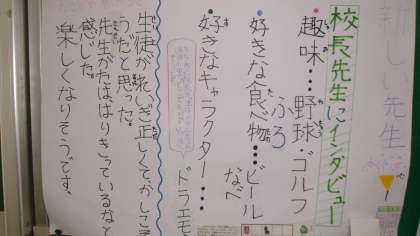 新しい先生
校長先生にインタビュー
趣味…野球・ゴルフ
ふろ
好きな食べ物…ビール
なべ
好きなキャラクター…
ドラエモ
生徒が礼いぎ正しくてかしこそ
うだと思った。
先生がたははりきっているなと
感じた。
楽しくなりそうです。